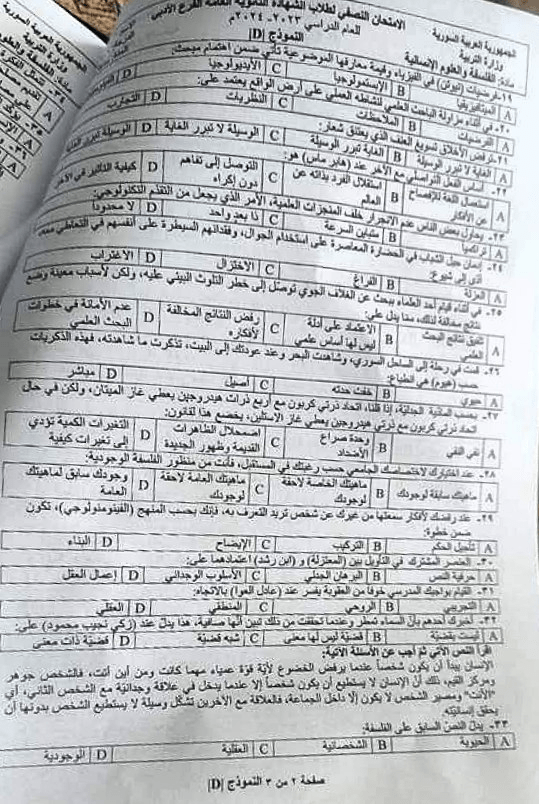 الجمهورية العربية السورية
وزارة التربية
مادة: الفلسفة والعلوم الإنسانية
الامتحان النصفي لطلاب الشهادة الثانوية العامة الفرع الأدبي
العام الدراسي ٢٠٢٣-٢٠٢٤م
النموذج |D|
١٩. فرضيات (نيوتن) في الفيزياء وقيمة معارفها الموضوعية تأتي ضمن اهتمام مبحث:
A الميتافيزيقيا B الإبستمولوجيا C الأيديولوجيا D
٢٠. في أثناء مزاولة الباحث العلمي لنشاطه العملي على أرض الواقع يعتمد على:
A الفرضيات B الملاحظات C النظريات D التجارب
٢١. ترفض الأخلاق تسويغ العنف الذي يعتنق شعار:
A الغاية لا تبرر الوسيلة B الغاية تبرر الوسيلة C الوسيلة لا تبرر الغاية D الوسيلة تبرر الغاية
٢٢. أساس الفعل التواصلي مع الآخر عند (هابر ماس) هو:
A استعمال اللغة للإفصاح عن الأفكار B استقلال الفرد بذاته عن العالم C التوصل إلى تفاهم دون إكراه D كيفية التأثير في الآخر
٢٣. يحاول بعض الناس عدم الانجرار خلف المنجزات العلمية، الأمر الذي يجعل من التقدم التكنولوجي:
A تراكمياً B متباين السرعة C ذا بعد واحد D لا محدوداً
٢٤. إدمان جيل الشباب في الحضارة المعاصرة على استخدام الجوال، وفقدانهم السيطرة على أنفسهم في التعاطي معه،
أدى إلى شيوع:
A العزلة B الفراغ C الاختزال D الاغتراب
٢٥. في أثناء قيام أحد العلماء ببحث عن الغلاف الجوي توصل إلى خطر التلوث البيئي عليه، ولكن لأسباب معينة وضع
نتائج مخالفة لذلك، مما يدل على:
A تلفيق نتائج البحث العلمي B الاعتماد على أدلة ليس لها أساس علمي C رفض النتائج المخالفة لأفكاره D عدم الأمانة في خطوات البحث العلمي
٢٦. قمت في رحلة إلى الساحل السوري، وشاهدت البحر وعند عودتك إلى البيت، تذكرت ما شاهدته، فهذه الذكريات
حسب (هيوم) هي انطباع:
A حيوي B خفت حدته C أصيل D مباشر
٢٧. بحسب المادية الجدلية، إذا قلنا: اتحاد ذرتي كربون مع أربع ذرات هيدروجين يعطي غاز الميتان، ولكن في حال
اتحاد ذرتي كربون مع ذرتي هيدروجين يعطي غاز الأستلين، يخضع هذا لقانون:
A نفي النفي B وحدة صراع الأضداد C اضمحلال الظاهرات القديمة وظهور الجديدة D التغيرات الكمية تؤدي إلى تغيرات كيفية
٢٨. عند اختيارك لاختصاصك الجامعي حسب رغبتك في المستقبل، فأنت من منظور الفلسفة الوجودية:
A ماهيتك سابقة لوجودك B ماهيتك الخاصة لاحقة لوجودك C ماهيتك العامة لاحقة لوجودك D وجودك سابق لماهيتك العامة
٢٩. عند رفضك لأفكار سمعتها من غيرك عن شخص تريد التعرف به، فإنك بحسب المنهج (الفينومنولوجي)، تكون
ضمن خطوة:
A تأجيل الحكم B التركيب C الإيضاح D البناء
٣٠. العنصر المشترك في التأويل بين (المعتزلة) و (ابن رشد) اعتمادهما على:
A حرفية النص B البرهان الجدلي C الأسلوب الوجداني D إعمال العقل
٣١. القيام بواجبك المدرسي خوفاً من العقوبة يفسر عند (عادل العوا) بالاتجاه:
A التجريبي B الروحي C المنطقي D العقلي
٣٢. أخبرك أحدهم بأن السماء تمطر وعندما تحققت من ذلك تبين أنها صافية، هذا يدل عند (زكي نجيب محمود) على:
A ليست بقضية B قضية ليس لها معنى C شبه قضية D قضية ذات معنى
اقرأ النص الآتي ثم أجب عن الأسئلة الآتية:
الإنسان يبدأ أن يكون شخصاً عندما يرفض الخضوع لأية قوة عمياء مهما كانت ومن أين أتت، فالشخص جوهر
ومركز القيم، ذلك أن الإنسان لا يستطيع أن يكون شخصاً إلا عندما يدخل في علاقة وجدانية مع الشخص الثاني، أي
"الأنت" ومصير الشخص لا يكون إلا داخل الجماعة، فالعلاقة مع الآخرين تشكل وسيلة لا يستطيع الشخص بدونها أن
يحقق إنسانيته
٣٣- يدل النص السابق على الفلسفة:
A الحيوية B الشخصانية C العقلية D الوجودية
صفحة ٢ من ٣ النموذج |D|